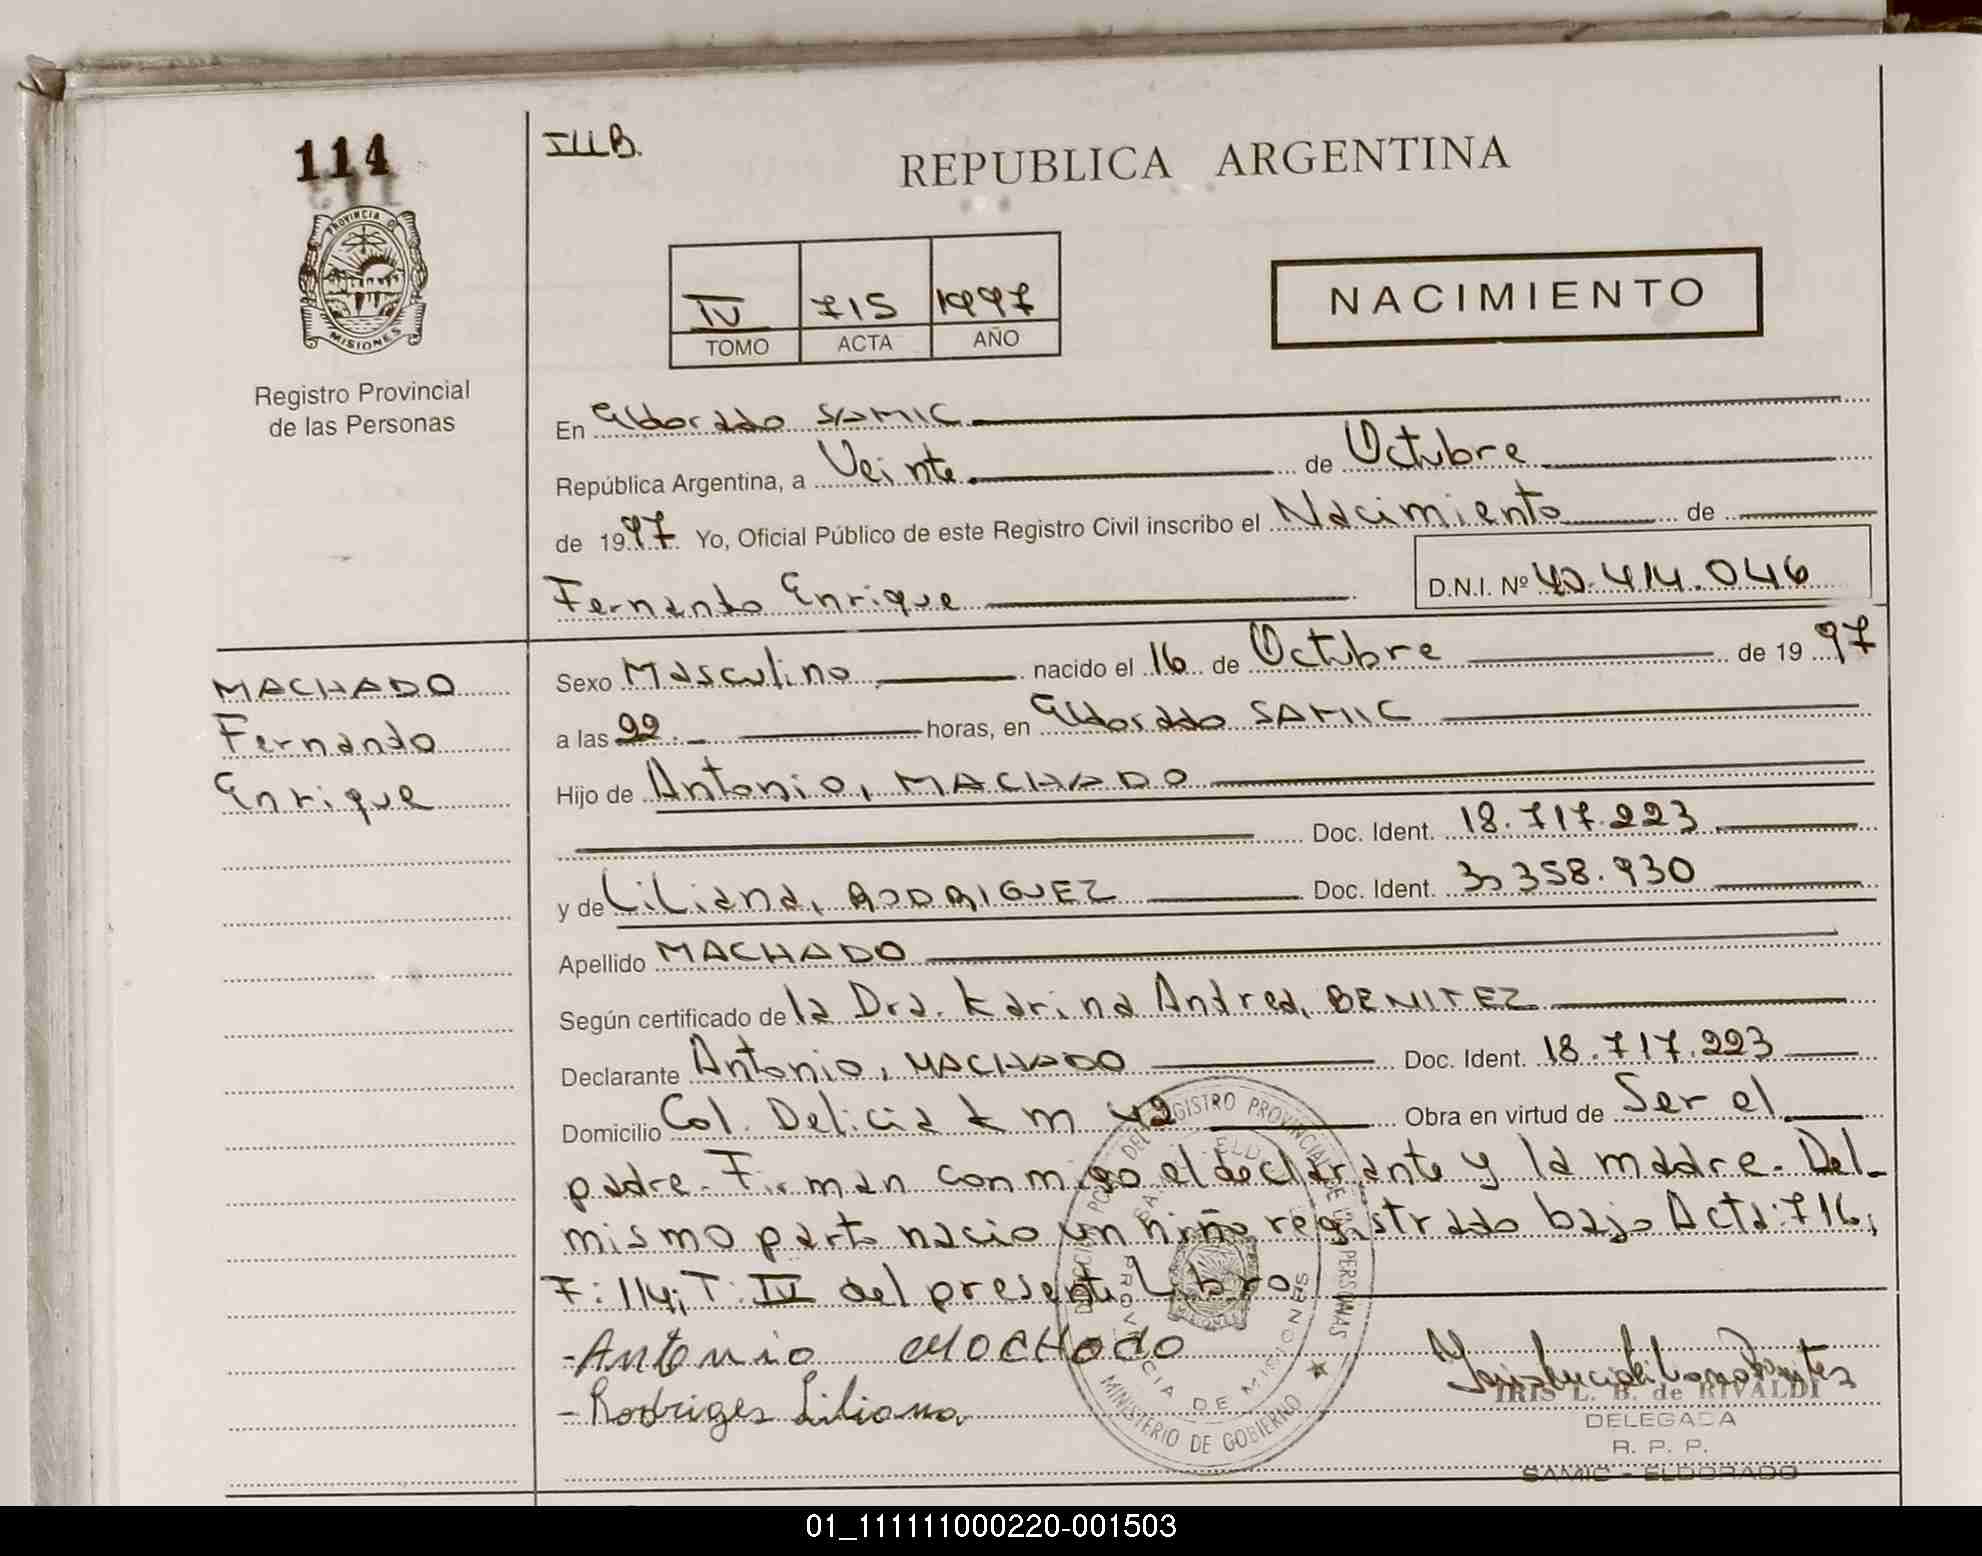 114
ILLB.
REPUBLICA ARGENTINA
PROVINCIA DE
MISIONES
Registro Provincial
de las Personas
IV 715 1997
TOMO ACTA AÑO
NACIMIENTO
En Eldorado SAMIC
República Argentina, a Veinte de Octubre
de 1997 Yo, Oficial Público de este Registro Civil inscribo el Nacimiento de
Fernando Enrique D.N.I. Nº 40.414.046
MACHADO
Fernando
Enrique
Sexo Masculino nacido el 16 de Octubre de 1997
a las 22. horas, en Eldorado SAMIC
Hijo de Antonio, MACHADO
Doc. Ident. 18.717.223
y de Liliana, RODRIGUEZ Doc. Ident. 30 358.930
Apellido MACHADO
Según certificado de la Dra. Karina Andrea, BENITEZ
Declarante Antonio, MACHADO Doc. Ident. 18.717.223
Domicilio Col. Delicia km 42 Obra en virtud de Ser el
padre. Firman conmigo el declarante y la madre. Del
mismo parto nacio un niño registrado bajo Acta: 716;
F: 114; T: IV del presente Libro
-Antonio MOCHODO
-Rodriges Liliana
IRIS L. B. de RIVALDI
DELEGADA
R. P. P.
SAMIC - ELDORADO
REGISTRO PROVINCIAL DE LAS PERSONAS
PROVINCIA DE MISIONES
MINISTERIO DE GOBIERNO
01_111111000220-001503